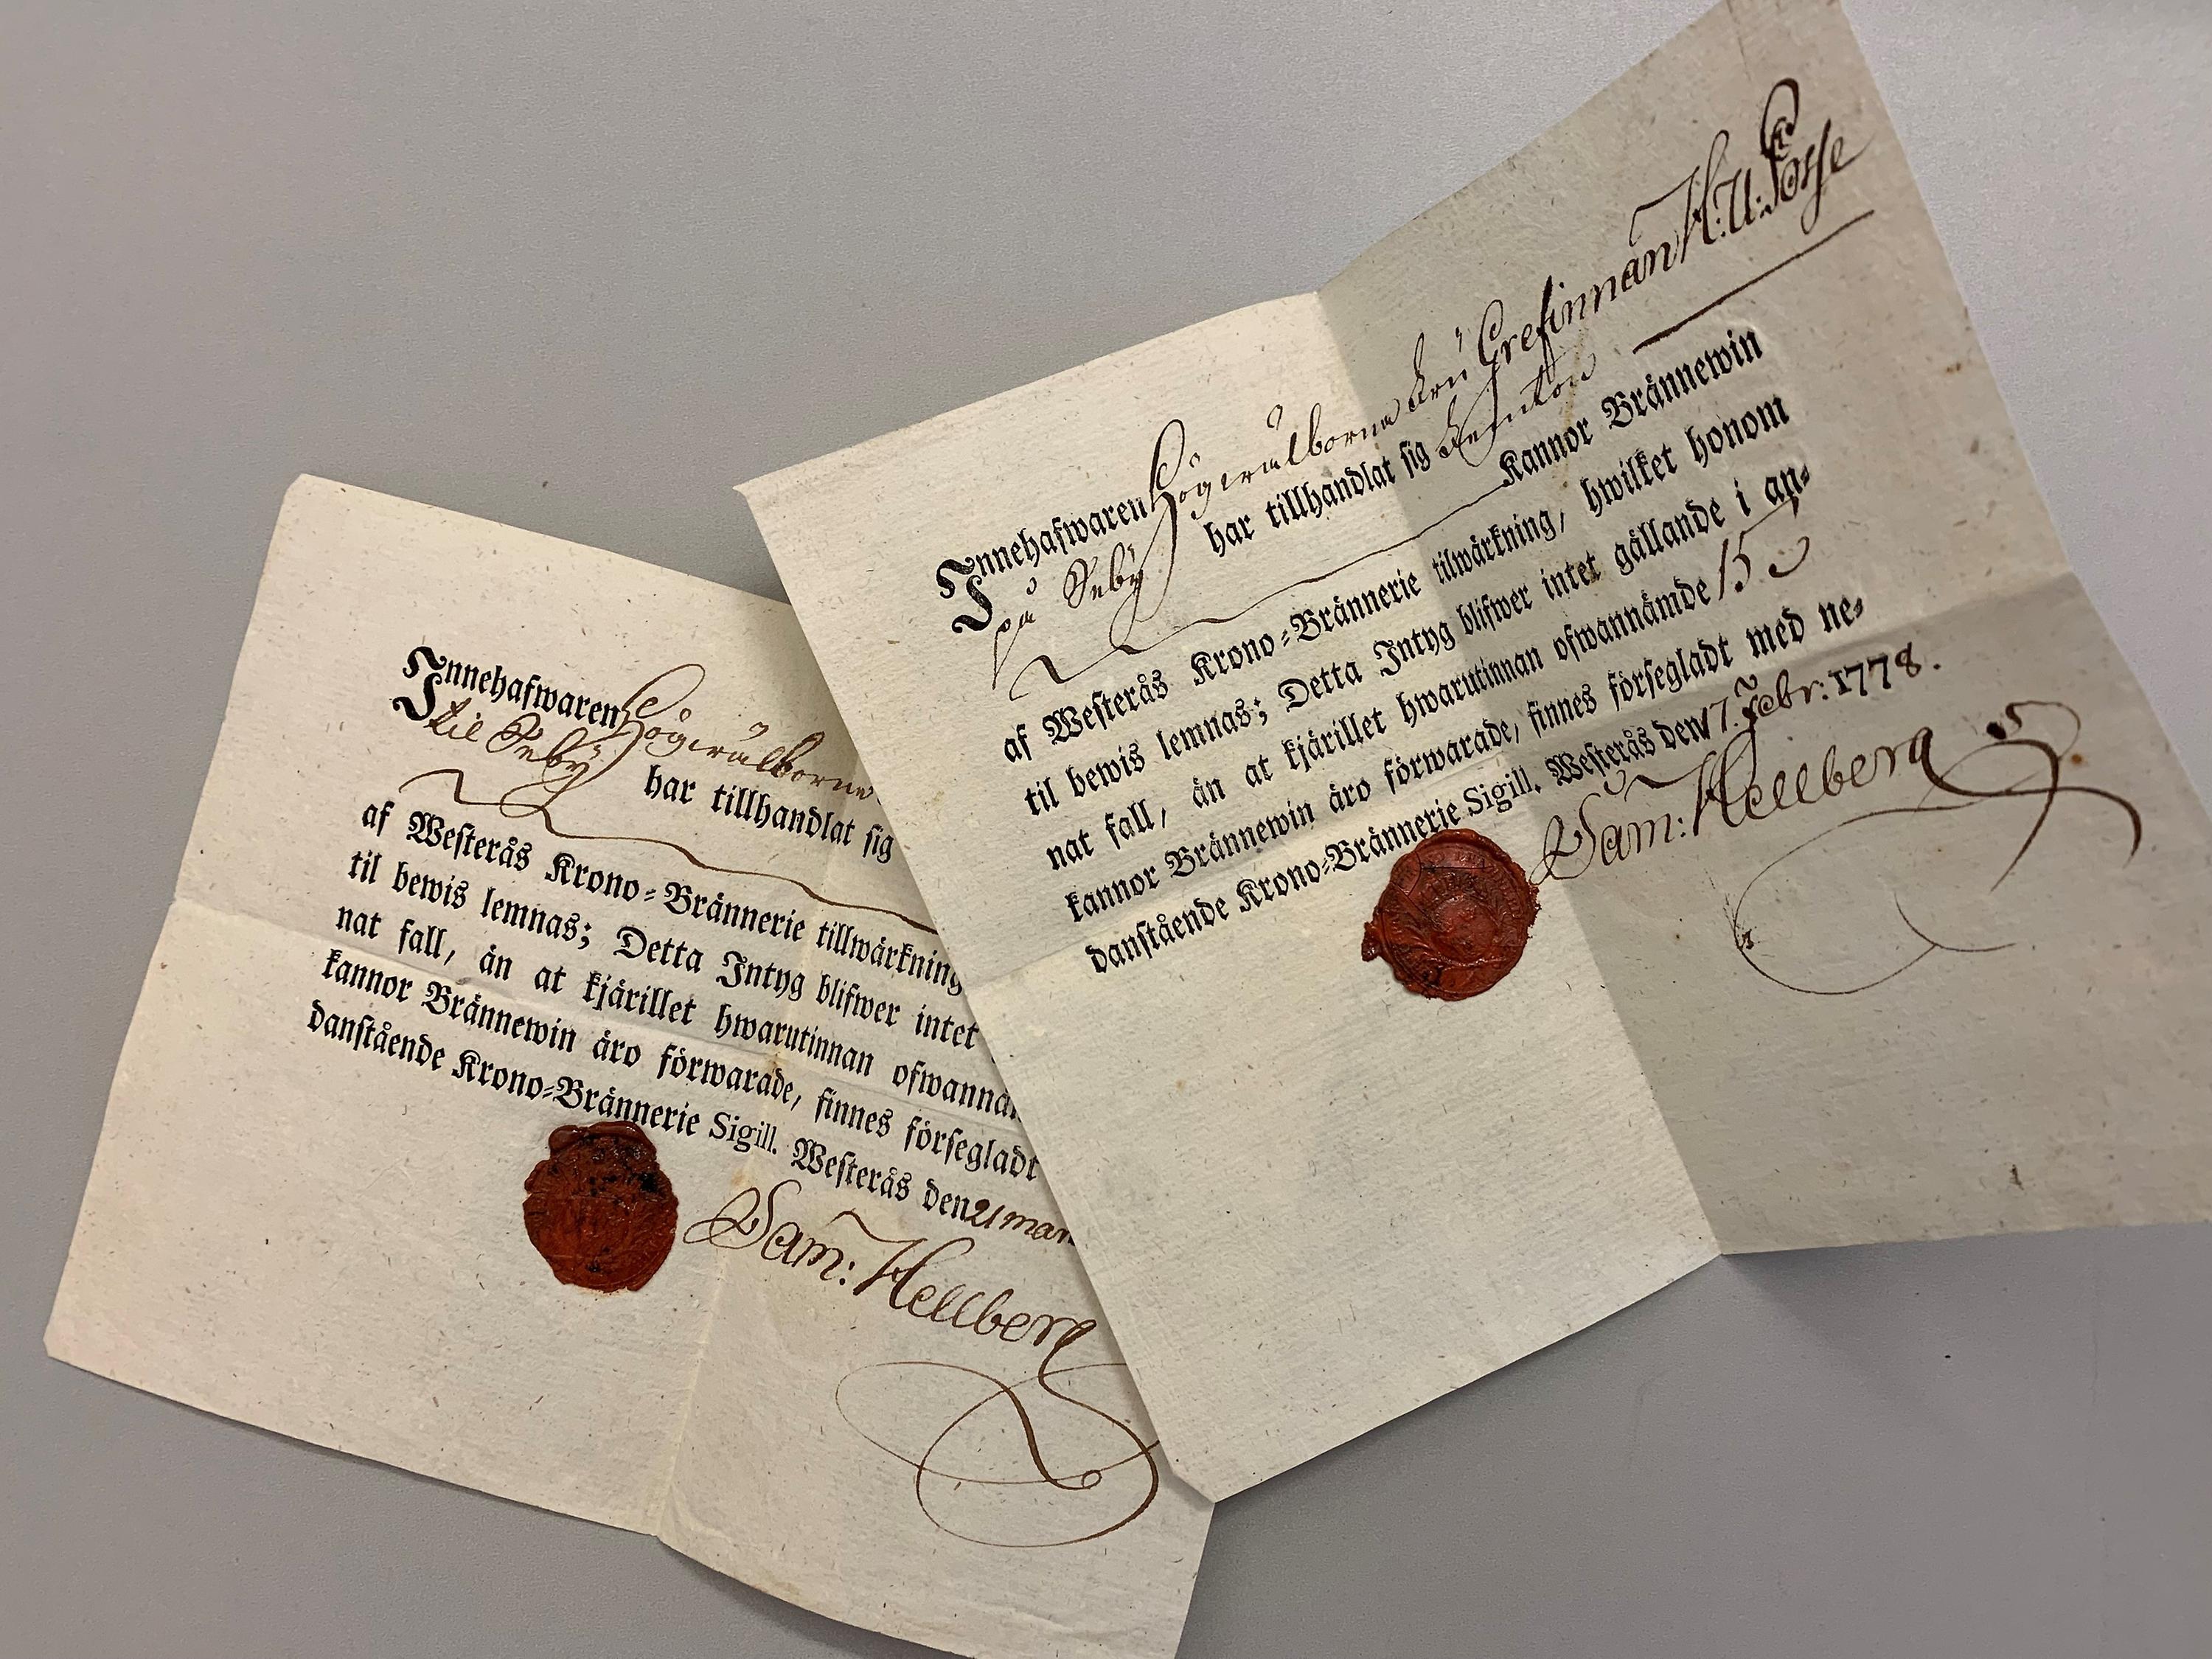 Innehafwaren Högwälborna Fru Grefinnan H: U: Posse
på Säby har tillhandlat sig Femton
Kannor Brännewin
af Westerås Krono-Brännerie tilwärkning, hwilket honom
til bewis lemnas; Detta Intyg blifwer intet gällande i an-
nat fall, än at kjärillet hwarutinnan ofwannämde 15
kannor Brännewin äro förwarade, finnes försegladt med ne-
danstående Krono-Brännerie Sigill. Westerås den 17. Febr: 1778.
Sam: Hellberg
Innehafwaren Högwälborne
til Säby har tillhandlat sig
af Westerås Krono-Brännerie tillwärkning
til bewis lemnas; Detta Intyg blifwer intet
nat fall, än at kjärillet hwarutinnan ofwannäm
kannor Brännewin äro förwarade, finnes försegladt
danstående Krono-Brännerie Sigill. Westerås den 21 mar
Sam: Hellberg